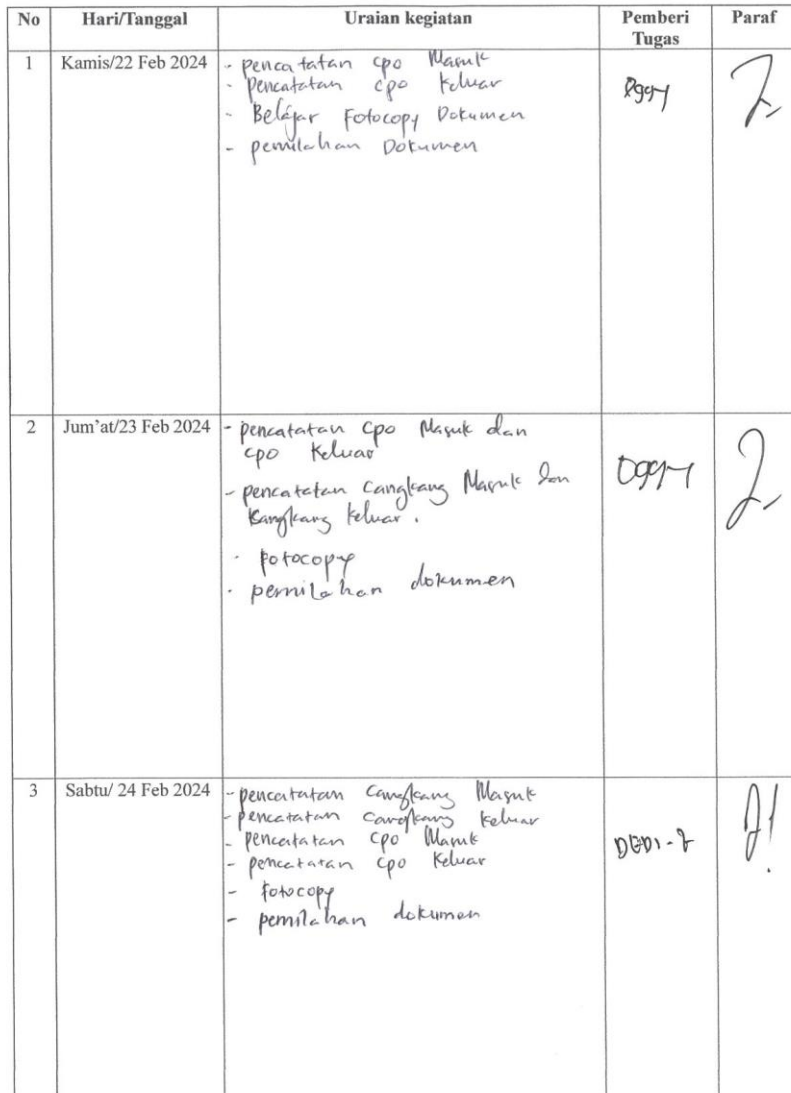 No Hari/Tanggal Uraian kegiatan Pemberi Tugas Paraf
1 Kamis/22 Feb 2024
- pencatatan cpo Masuk
- pencatatan cpo keluar
- Belajar Fotocopy Dokumen
- pemilahan Dokumen
2 Jum'at/23 Feb 2024
- pencatatan cpo Masuk dan
cpo keluar
- pencatatan cangkang Masuk dan
kangkang keluar.
- Fotocopy
- pemilahan dokumen
3 Sabtu/ 24 Feb 2024
- pencatatan cangkang Masuk
- pencatatan cangkang keluar
- pencatatan cpo Masuk
- pencatatan cpo keluar
- Fotocopy
- pemilahan dokumen
DEDI